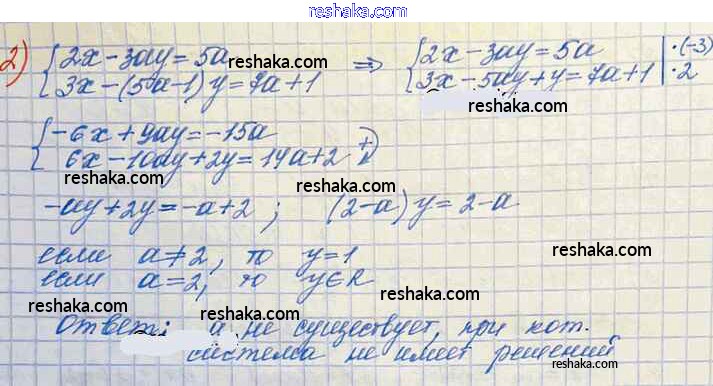 reshaka.com
2) { 2x - 3ay = 5a ⇒ { 2x - 3ay = 5a | ·(-3)
{ 3x - (5a - 1)y = 7a + 1 { 3x - 5ay + y = 7a + 1 | ·2
reshaka.com reshaka.com
{ -6x + 9ay = -15a
{ 6x - 10ay + 2y = 14a + 2 (+)
reshaka.com reshaka.com
-ay + 2y = -a + 2 ; (2 - a) y = 2 - a
reshaka.com
если a ≠ 2, то y = 1
если a = 2, то y ∈ R
reshaka.com reshaka.com
Ответ: a не существует, при кот.
система не имеет решений
reshaka.com